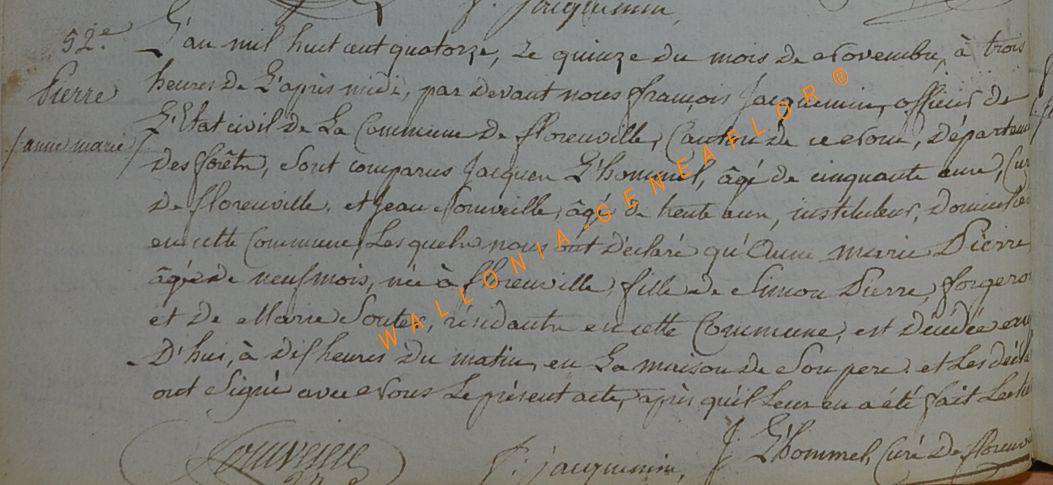 f. Jacquemin,
52.e
Pierre
/anne marie/
L'an mil huit cent quatorze, Le quinze du mois de Novembre, à trois
heures de L'après midi, par devant nous françois Jacquemin, officier de
L'Etat civil de La Commune de florenville, Canton de ce nom, Départem
des forêts, sont comparus Jacques L'hommel, âgé de cinquante ans, Curé
de florenville, et Jean Sonveille, âgé de trente ans, instituteur, domiciliés
en cette Commune, Lesquels nous ont déclaré qu'Anne marie Pierre
âgée de neuf mois, née à florenville, fille de Simon Pierre, forgeron
et de Marie Soutes, résidants en cette Commune, est décédée au
D'hui, à dix heures du matin, en La maison de Son pere. et Les décla
ont Signé avec Nous Le présent acte, après qu'il Leur en a été fait Lecture
f. jacquemin,
J. L'hommel, Curé de florenvi
WALLONIA-GENEAFLOR ®